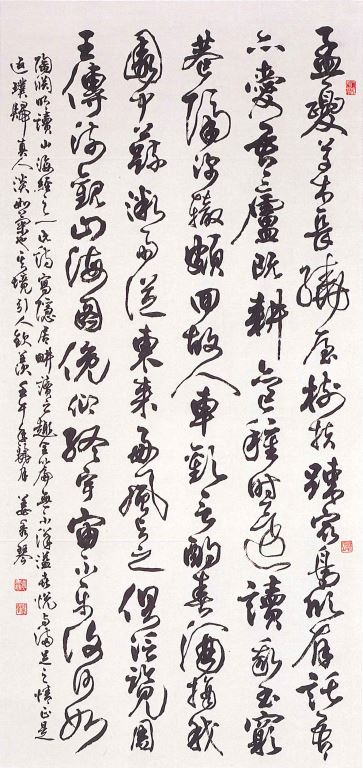 孟夏草木長繞屋樹扶疎眾鳥欣有託吾
亦愛吾廬既耕亦已種時還讀我書窮
巷隔深轍頗回故人車歡言酌春酒摘我
園中蔬微雨從東來好風與之俱泛覽周
王傳流觀山海圖俛仰終宇宙不樂復何如
陶淵明讀山海經之一此詩寫隱居耕讀之趣全篇無不洋溢喜悅與滿足之情正是
返璞歸真人淡如菊之境引人欽羨壬午年月姜琴